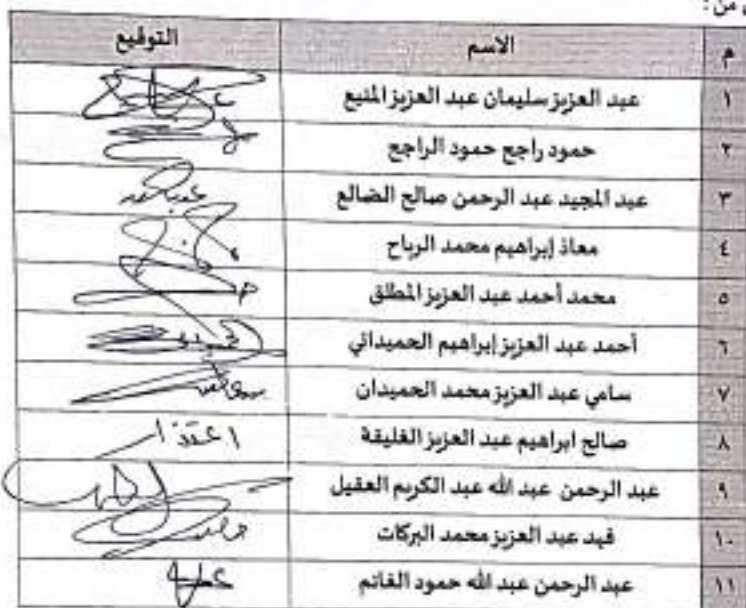 من :
م الاسم التوقيع
١ عبد العزيز سليمان عبد العزيز المنيع
٢ حمود راجح حمود الراجح
٣ عبد المجيد عبد الرحمن صالح الضالع
٤ معاذ إبراهيم محمد الرباح
٥ محمد أحمد عبد العزيز المطلق
٦ أحمد عبد العزيز إبراهيم الحميداني
٧ سامي عبد العزيز محمد الحميدان
٨ صالح ابراهيم عبد العزيز الغليقة اعتذار
٩ عبد الرحمن عبد الله عبد الكريم العقيل
١٠ فهد عبد العزيز محمد البركات
١١ عبد الرحمن عبد الله حمود الغانم